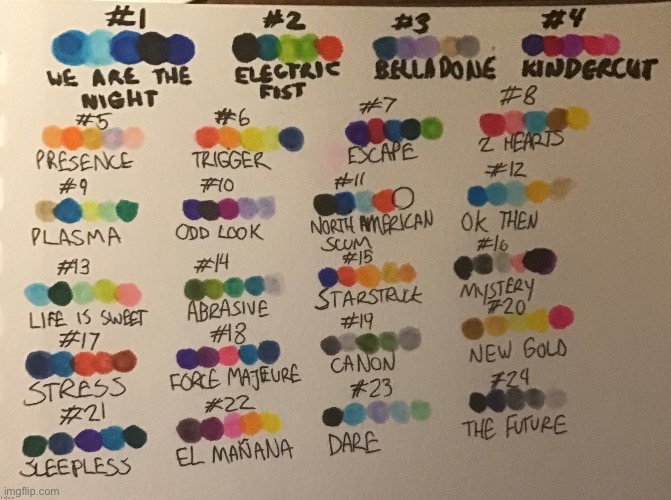 #1
WE ARE THE
NIGHT
#2
ELECTRIC
FIST
#3
BELLADONE
#4
KINDERCUT
#5
PRESENCE
#6
TRIGGER
#7
ESCAPE
#8
2 HEARTS
#9
PLASMA
#10
ODD LOOK
#11
NORTH AMERICAN
SCUM
#12
OK THEN
#13
LIFE IS SWEET
#14
ABRASIVE
#15
STARSTRUCK
#16
MYSTERY
#17
STRESS
#18
FORCE MAJEURE
#19
CANON
#20
NEW GOLD
#21
SLEEPLESS
#22
EL MAÑANA
#23
DARE
#24
THE FUTURE
imgflip.com